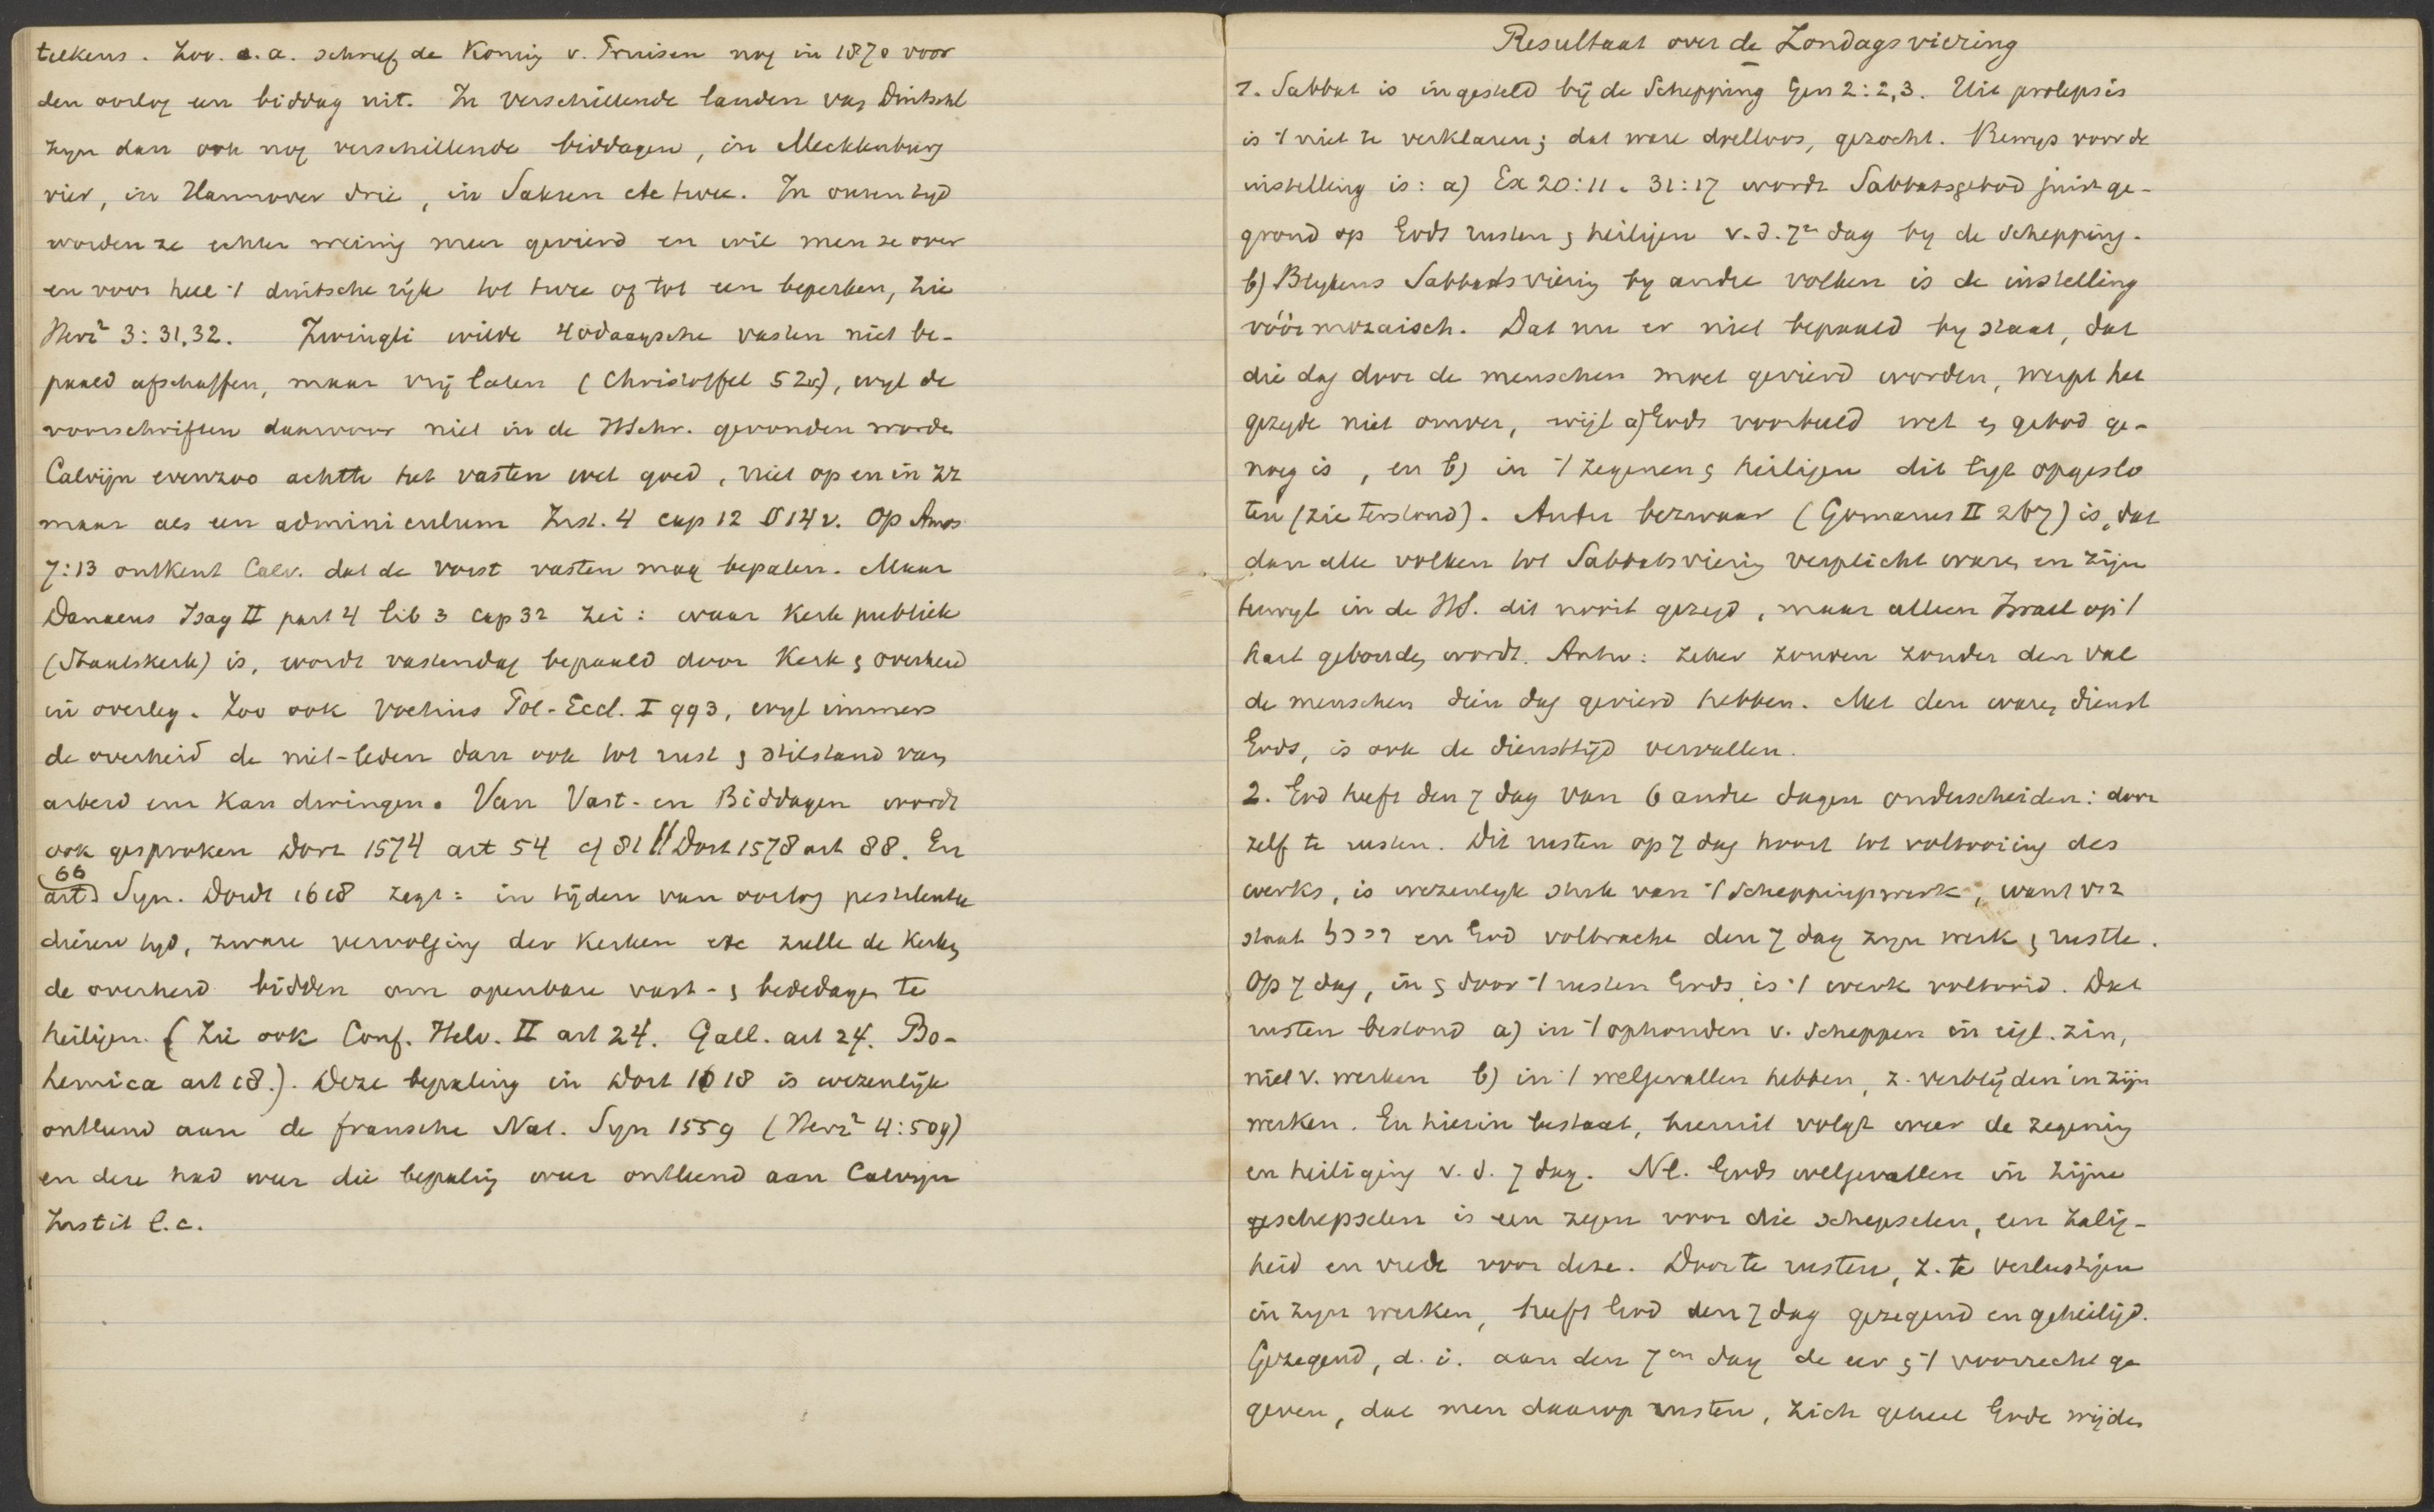 telkens. Zoo. o.a. schreef de Koning v. Pruisen nog in 1870 voor
den oorlog een biddag uit. In verschillende landen van Duitschl
zijn dan ook nog verschillende biddagen, in Mecklenburg
vier, in Hannover drie, in Saksen etc twee. In onzen tijd
worden ze echter weinig meer gevierd en wil men ze over
en voor heel 't duitsche rijk tot twee of tot een beperken, zie
Herz² 3:31,32. Zwingli wilde 40daagsche vasten niet be-
paald afschaffen, maar vrij laten (Christoffel 52), wijl de
voorschriften daarvoor niet in de HSchr. gevonden worde
Calvijn evenzoo achtte het vasten wel goed, niet op en in zz
maar als een adminiculum Inst. 4 cap 12 § 14 v. Op Amos
7:13 ontkent Calv. dat de vorst vasten mag bepalen. Maar
Danaeus Isag II part 4 lib 3 cap 32 zei: waar Kerk publiek
(Staatskerk) is, wordt vastendag bepaald door Kerk & overheid
in overleg. Zoo ook Voetius Pol-Eccl. I 993, wijl immers
de overheid de niet-leden dan ook tot rust & stilstand van
arbeid enz kan dwingen. Van Vast- en Biddagen wordt
ook gesproken Dort 1574 art 54 cf 81 // Dort 1578 art 88. En
66
art) Syn. Dordt 1618 zegt: in tijden van oorlog pestilentie
dieren tijd, zware vervolging der Kerken etc zulle de Kerken
de overheid bidden om openbare vast- & bededagen te
heiligen. (Zie ook Conf. Helv. II art 24. Gall. art 24. Bo-
hemica art 18.). Deze bepaling in Dort 1618 is wezenlijk
ontleend aan de fransche Nat. Syn 1559 (Herz² 4:509)
en deze had weer die bepaling weer ontleend aan Calvijn
Instit l.c.
Resultaat over de Zondagsviering
1. Sabbat is ingesteld bij de Schepping Gen 2:2,3. Uit prolepsis
is 't niet te verklaren; dat ware doelloos, gezocht. Bewijs voor de
instelling is: a) Ex 20:11. 31:17 wordt Sabbatsgebod juist ge-
grond op Gods rusten & heiligen v.d. 7en dag bij de schepping.
b) Blijkens Sabbatsviering bij andre volken is de instelling
vóór mozaisch. Dat nu er niet bepaald bij staat, dat
die dag door de menschen moet gevierd worden, werpt het
gezegde niet omver, wijl a) Gods voorbeeld wet en gebod ge-
noeg is, en b) in 't zegenen & heiligen dit ligt opgeslo
ten (zie terstond). Ander bezwaar (Gomarus II 267) is, dat
dan alle volken tot Sabbatsviering verplicht waren en zijn
terwijl in de HS. dit nooit gezegd, maar alleen Israel op 't
hart gebonden wordt. Antw: zeker zouden zonder den val
de menschen dien dag gevierd hebben. Met den waren dienst
Gods, is ook de diensttijd vervallen.
2. God heeft den 7 dag van 6 andre dagen onderscheiden: door
zelf te rusten. Dit rusten op 7 dag hoort tot voltooiing des
werks, is wezenlijk stuk van 't scheppingswerk, want vs 2
staat ויכל en God volbracht den 7 dag zijn werk & rustte.
Op 7 dag, in & door 't rusten Gods is 't werk voltooid. Dat
rusten bestond a) in 't ophouden v. scheppen in eigl. zin,
niet v. werken b) in 't welgevallen hebben, z. verblijden in zijn
werken. En hierin bestaat, hieruit volgt weer de zegening
en heiliging v.d. 7 dag. Nl. Gods welgevallen in zijne
schepselen is een zegen voor die schepselen, een zalig-
heid en vrede voor deze. Door te rusten, z. te verlustigen
in zijn werken, heeft God den 7 dag gezegend en geheiligd.
Gezegend, d.i. aan den 7en dag de eer & 't voorrecht ge
geven, dat men daarop rusten, zich geheel Gode wijden